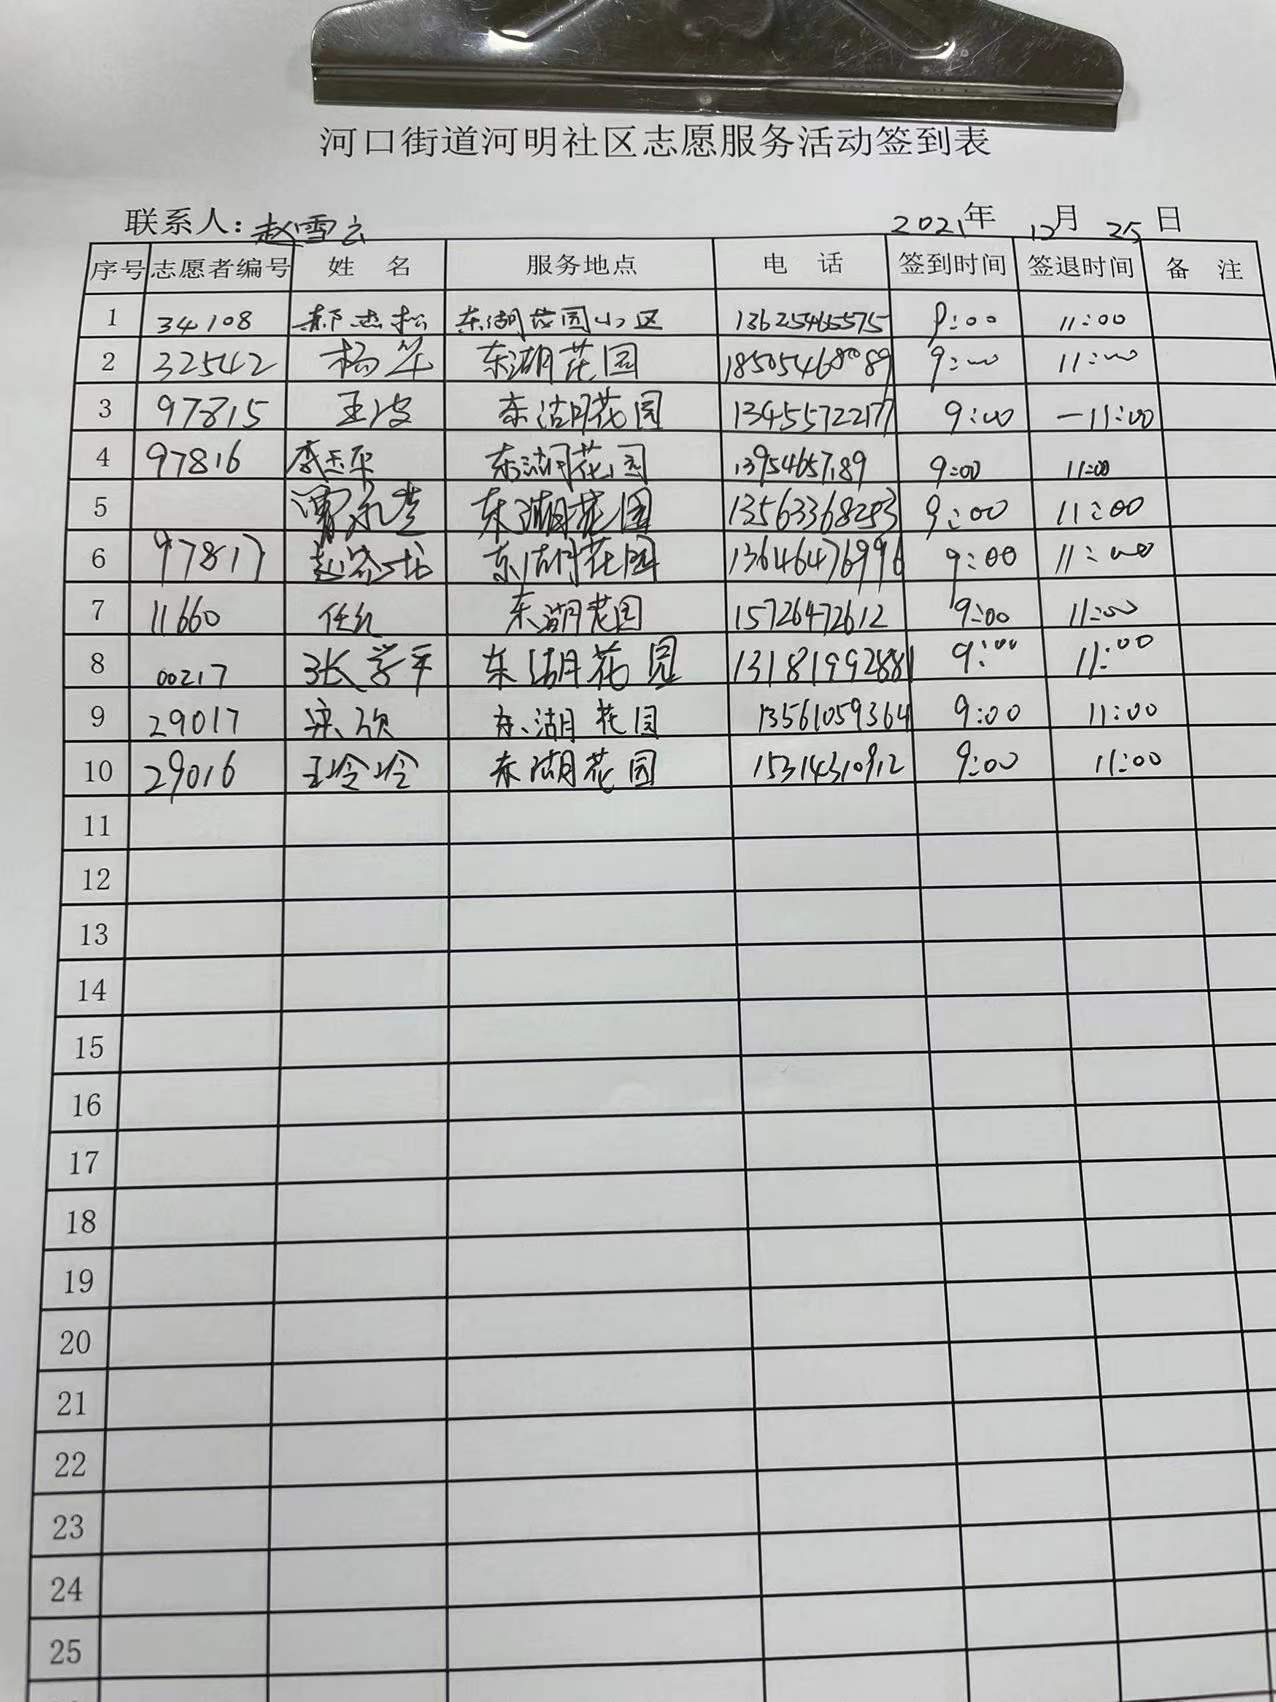 河口街道河明社区志愿服务活动签到表
联系人：赵雪云 2021年 12月 25日
序号 志愿者编号 姓 名 服务地点 电 话 签到时间 签退时间 备 注
1 34108 东湖花园小区 13625465575 9:00 11:00
2 32542 杨华 东湖花园 18505468089 9:00 11:00
3 97815 王俊 东湖花园 13455722177 9:00 11:00
4 97816 李玉平 东湖花园 13954657189 9:00 11:00
5 东湖花园 13563368253 9:00 11:00
6 97817 东湖花园 13646476996 9:00 11:00
7 11660 任红 东湖花园 15726472612 9:00 11:00
8 00217 张学平 东湖花园 13181992881 9:00 11:00
9 29017 宋欣 东湖花园 13561059364 9:00 11:00
10 29016 王冷冷 东湖花园 15314310912 9:00 11:00
11
12
13
14
15
16
17
18
19
20
21
22
23
24
25